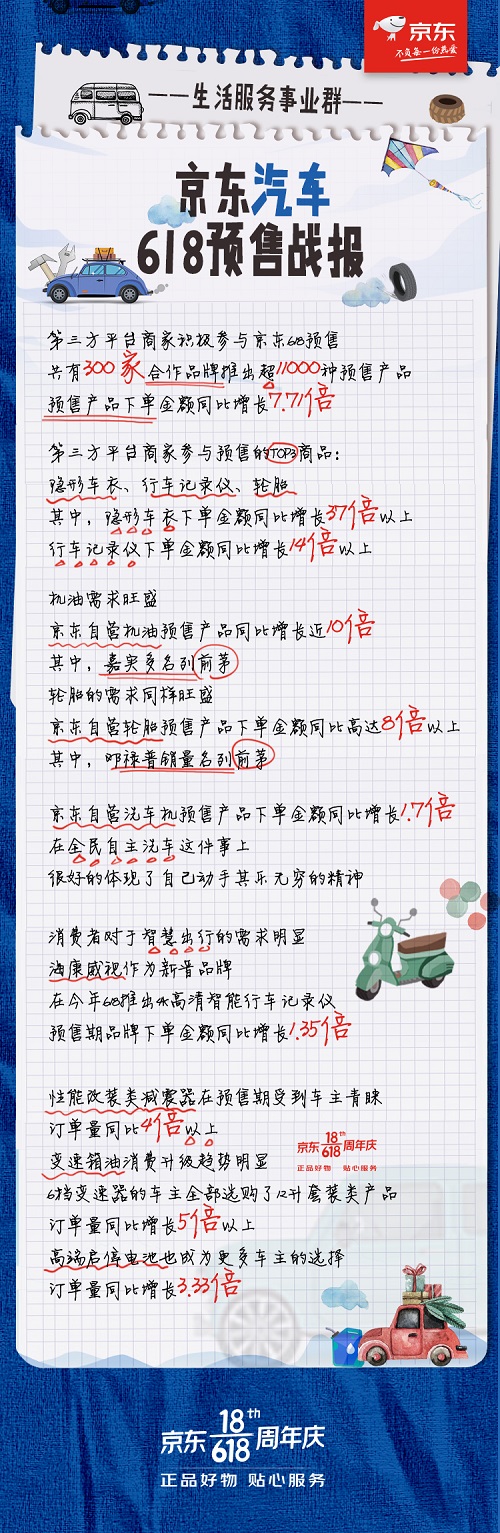 京东
不负每一份热爱
——生活服务事业群——
京东汽车
618预售战报
第三方平台商家积极参与京东618预售
共有300家合作品牌推出超11000种预售产品
预售产品下单金额同比增长7.71倍
第三方平台商家参与预售的TOP3商品：
隐形车衣、行车记录仪、轮胎
其中，隐形车衣下单金额同比增长37倍以上
行车记录仪下单金额同比增长14倍以上
机油需求旺盛
京东自营机油预售产品同比增长近10倍
其中，嘉实多名列前茅
轮胎的需求同样旺盛
京东自营轮胎预售产品下单金额同比高达8倍以上
其中，邓禄普销量名列前茅
京东自营洗车机预售产品下单金额同比增长1.7倍
在全民自主洗车这件事上
很好的体现了自己动手其乐无穷的精神
消费者对于智慧出行的需求明显
海康威视作为新晋品牌
在今年618推出4K高清智能行车记录仪
预售期品牌下单金额同比增长1.35倍
性能改装类减震器在预售期受到车主青睐
订单量同比4倍以上
京东18th618周年庆
正品好物 贴心服务
变速箱油消费升级趋势明显
6档变速器的车主全部选购了12升套装类产品
订单量同比增长5倍以上
高端启停电池也成为更多车主的选择
订单量同比增长3.33倍
京东18th618周年庆
正品好物 贴心服务